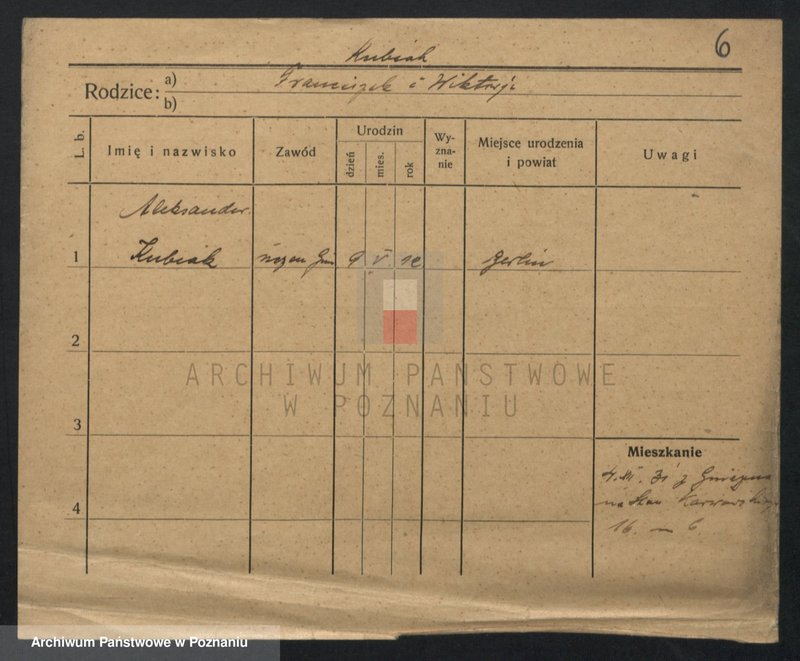 6
Kubiak
Rodzice: a) Franciszek i Wiktorja
b)
L. b.
Imię i nazwisko
Zawód
Urodzin
dzień
mies.
rok
Wy-
zna-
nie
Miejsce urodzenia
i powiat
Uwagi
Aleksander
1 Kubiak uczeń 9 V 12 Berlin
2
3
4
Mieszkanie
31 z Gniezna
na
16 – 6
ARCHIWUM PAŃSTWOWE
W POZNANIU
Archiwum Państwowe w Poznaniu